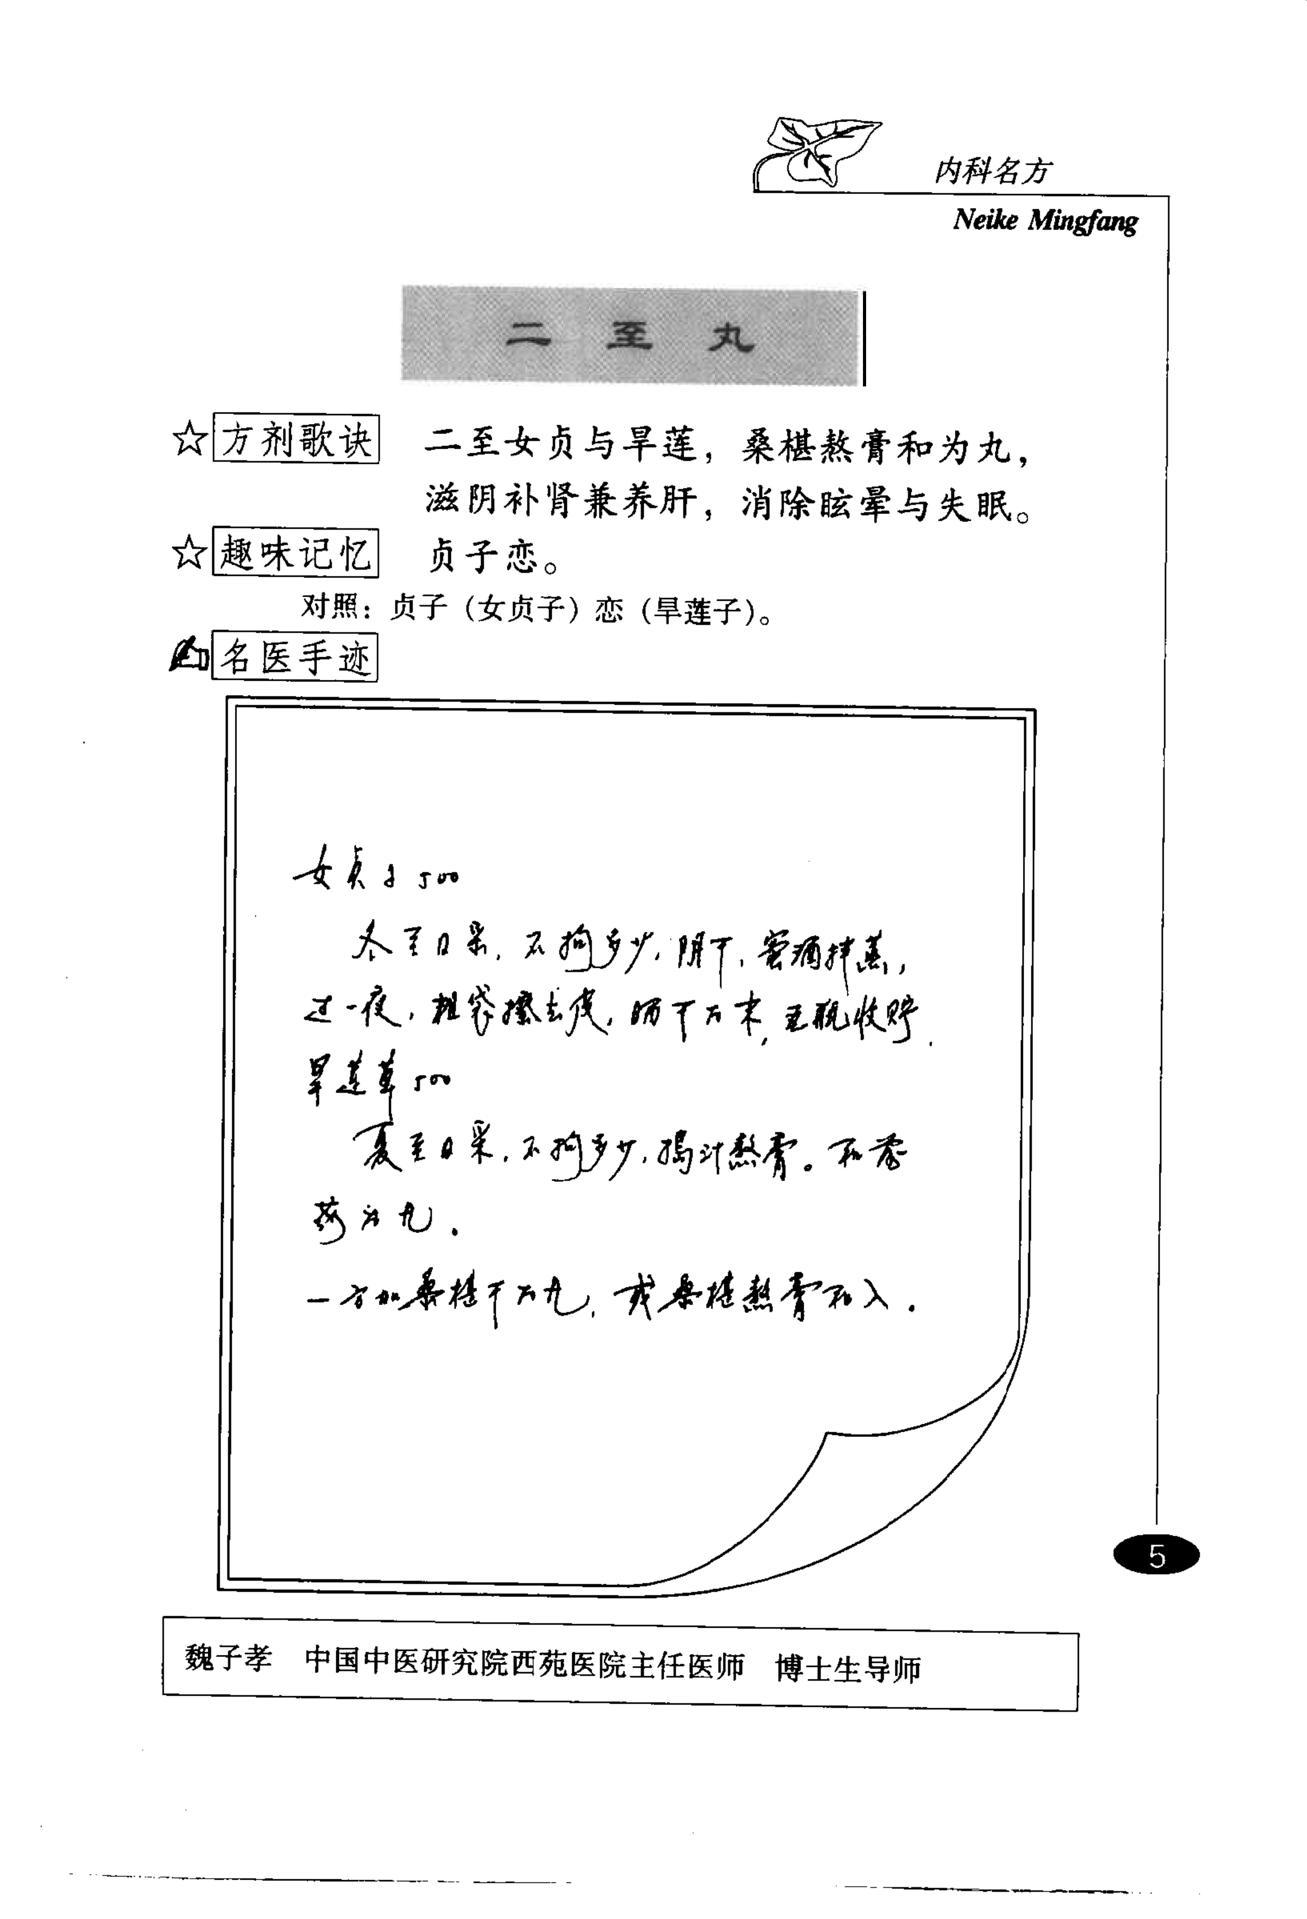 内科名方
Neike Mingfang
二至丸
☆方剂歌诀 二至女贞与旱莲，桑椹熬膏和为丸，
滋阴补肾兼养肝，消除眩晕与失眠。
☆趣味记忆 贞子恋。
对照：贞子（女贞子）恋（旱莲子）。
名医手迹
女贞子500
冬至日采，不拘多少，阴干，蜜酒拌蒸，
过一夜，粗袋擦去皮，晒干为末，瓦瓶收贮．
旱莲草500
夏至日采，不拘多少，捣汁熬膏。和前
药为丸．
一方加桑椹干为丸，或桑椹熬膏和入．
5
魏子孝 中国中医研究院西苑医院主任医师 博士生导师